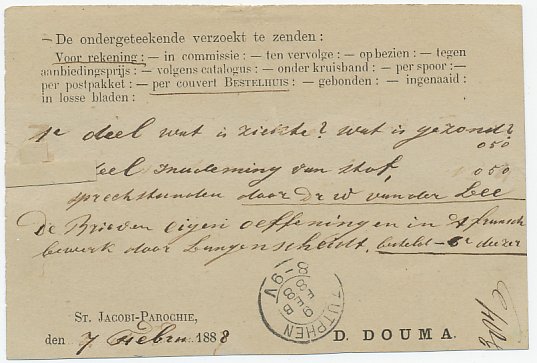 — De ondergeteekende verzoekt te zenden :
Voor rekening : — in commissie : — ten vervolge : — op bezien : — tegen
aanbiedingsprijs : — volgens catalogus : — onder kruisband : — per spoor : —
per postpakket : — per couvert BESTELHUIS : — gebonden : — ingenaaid :
in losse bladen :
1e deel wat is ziekte? wat is gezond?
0 50
eel inademing van stof, 0 50
spreekstonden door Dr W van der Lee
De Brieven eigen oeffening en in 't fransch
bewerk door Langenscheidt, besteld
ZUTPHEN
8 FEB 88
8-9V
ST. JACOBI-PAROCHIE,
den 7 Febru 1888
D. DOUMA.